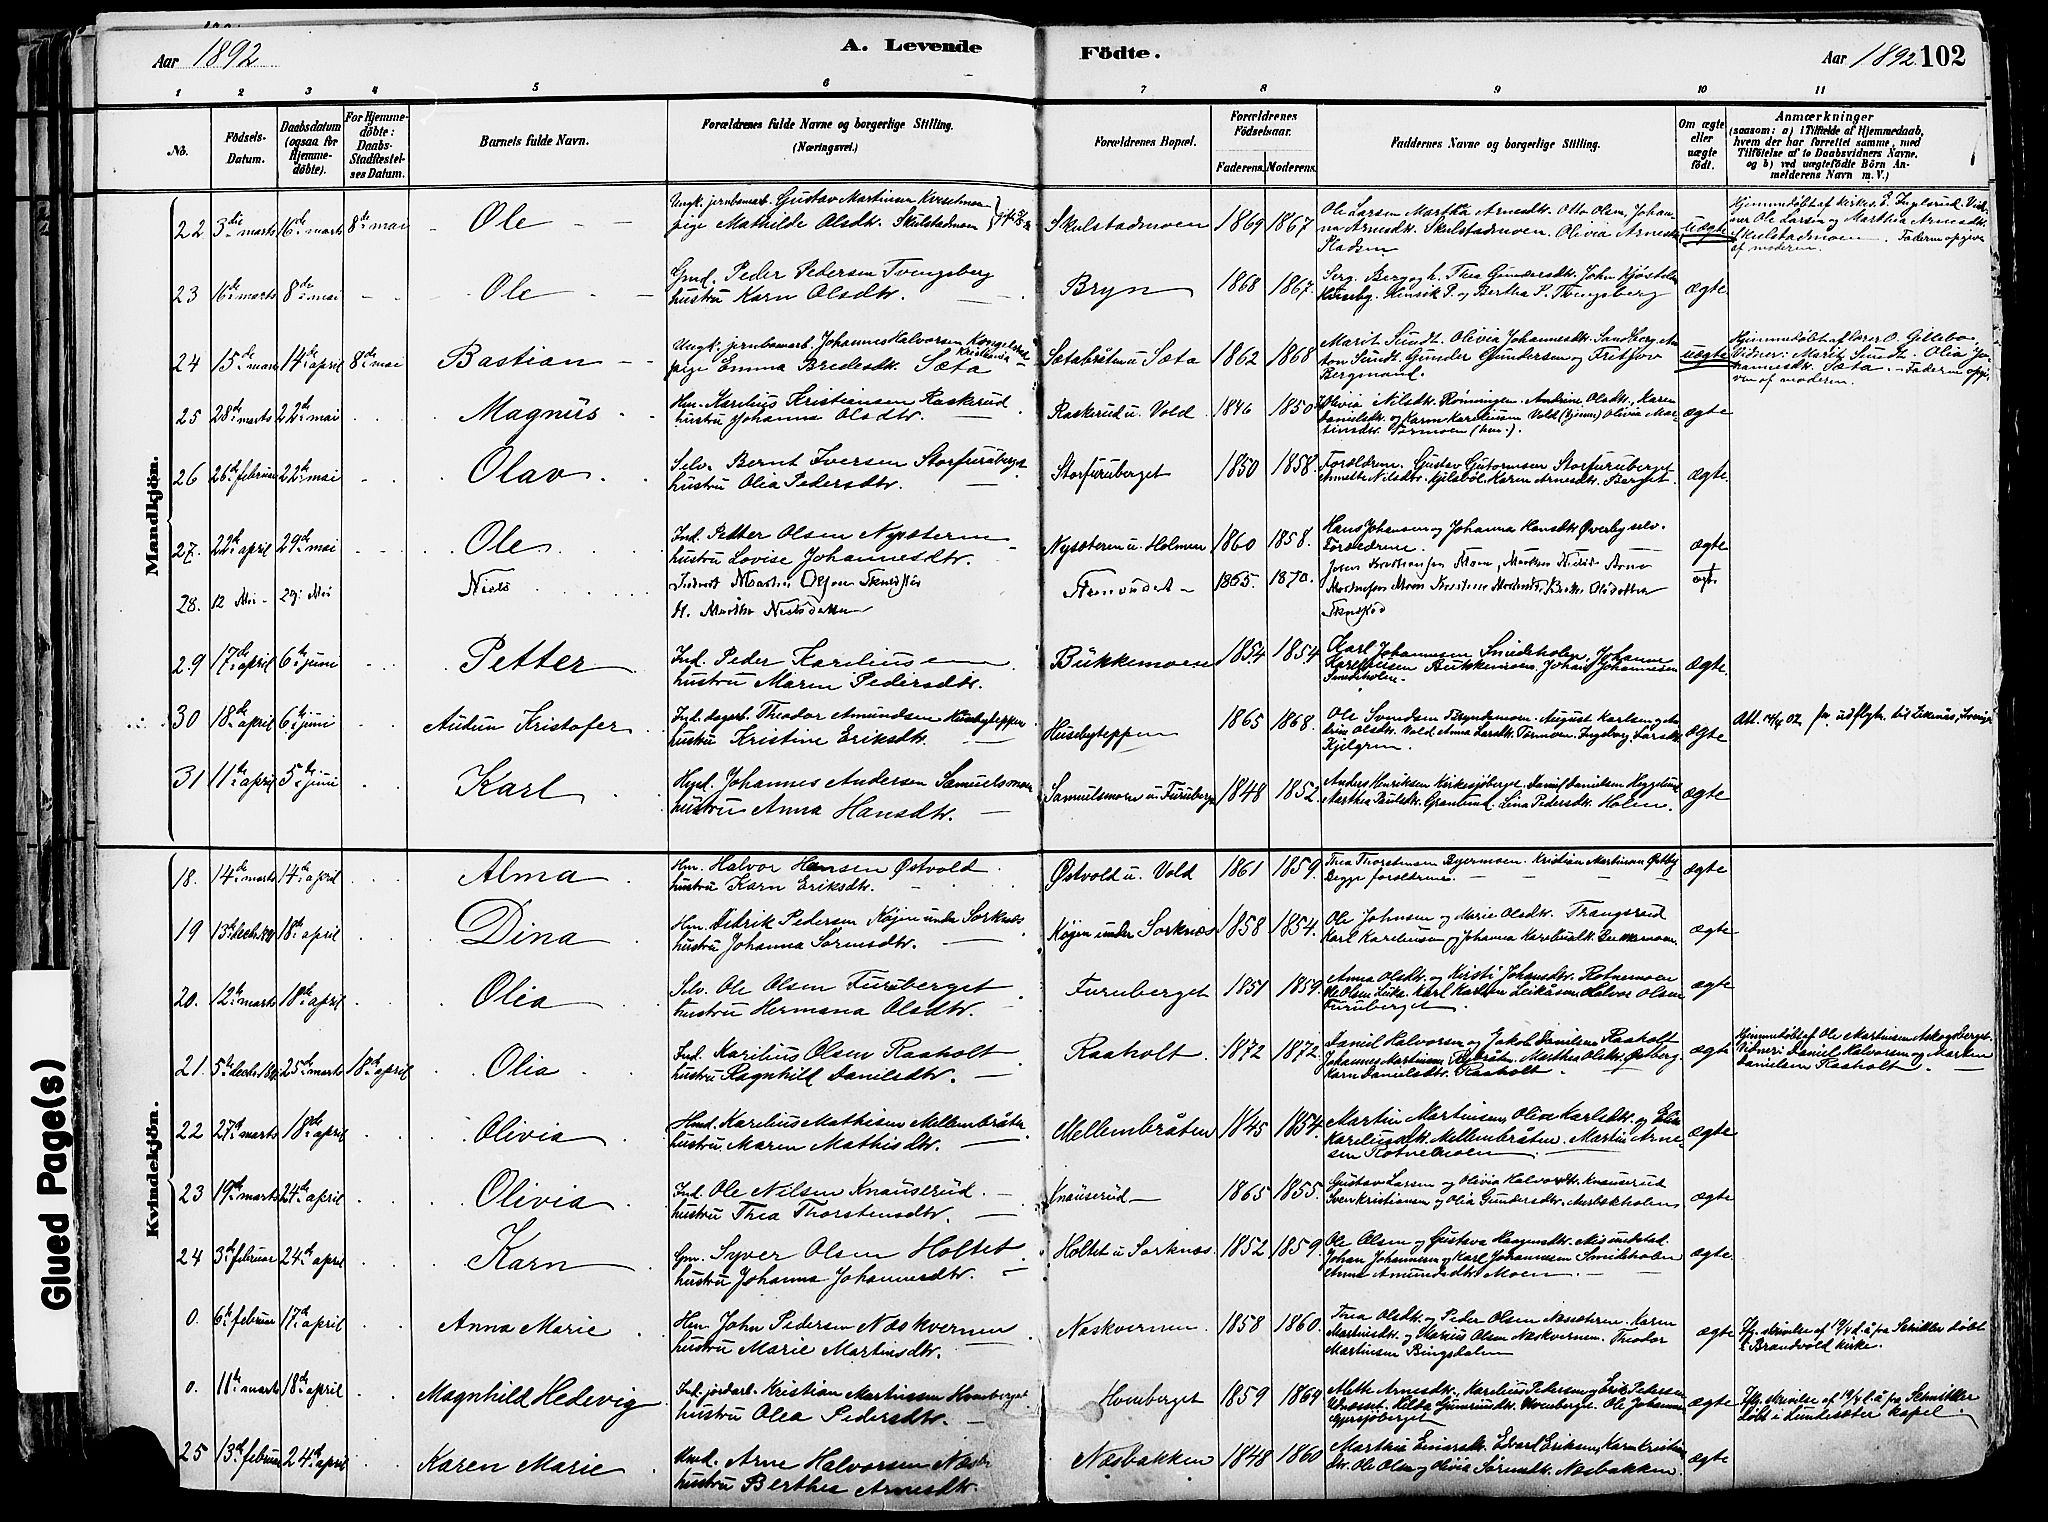 Aar 1892
A. Levende
Födte.
Aar 1892. 102
1 2 3 4 5 6 7 8 9 10 11
No.
Födsels-
Datum.
Daabsdatum
(ogsaa for
Hjemme-
döbte).
For Hjemme-
döbte:
Daabs-
Stadfæstel-
ses Datum.
Barnets fulde Navn.
Forældrenes fulde Navne og borgerlige Stilling.
(Næringsvei.)
Forældrenes Bopæl.
Forældrenes
Födselsaar.
Faderens. Moderens.
Faddernes Navne og borgerlige Stilling.
Om ægte
eller
uægte
födt.
Anmærkninger
(saasom: a) i Tilfælde af Hjemmedaab,
hvem der har forrettet samme, med
Tilföielse af to Daabsvidners Navne.
og b) ved uægtefödte Börn An-
melderens Navn m. V.)
Mandkjön.
22 3die marts 16de marts 8de mai Ole
Ungk. jernbanearb. Gustav Martinsen
pige Mathilde Olsdtr. Skulstadmoen
Skulstadmoen 1869 1867
Ole Larsen Martha Arnesdtr. Otto Olsen, Johan-
na Arnesdtr. Skulstadmoen. Olivia Arnesdtr.
uægte
Vid-
ner Ole Larsen og Marthea Arnesdtr.
Skulstadmoen. Faderen opgiven
af moderen.
23 16de marts 8de mai Ole
Gmd. Peder Pedersen Tvengsberg
hustru Karn Olsdtr.
Bryn 1868 1867.
Serg. Berg og h. Thea Gundersdtr. John Kjöstelsen
Huseby. Henrik P. og Bertha P. Tvengsberg
ægte
24 15de mars 14de april 8de mai Bastian
Ungk. jernbanearb. Johannes Halvorsen
Kristiania
pige Emma Bredesdtr. Sæta
Sætabråten u. Sæta 1862 1868
Marit Sundt. Olivia Johannesdtr. Sandberg. An-
ton Sundt. Gunder Gundersen og Fritjov
Bergmand.
uægte
Hjemmedöbt af lærer O. Gillebo.
Vidner: Marit Sundt. Olia Jo-
hannesdtr. Sæta. Faderen opgi-
ven af moderen.
25 28de marts 22de mai Magnus
Hm. Karelius Kristiansen Raskerud
hustru Johanna Olsdtr.
Raskerud u. Vold 1846 1850
Olivia Nilsdtr. Rönningen. Andrine Olsdtr. Karen
Danielsdtr. og Karen Kareliusen Vold (hjemme) Olivia Mar-
tinsdtr. Tørmoen
ægte
26 26de februar 22de mai Olav
Selv. Bernt Iversen Storfuruberget
hustru Olia Pedersdtr.
Storfuruberget 1850 1858
Forældrene. Gustav Gutormsen Storfuruberget
Anneste Nilsdtr. Kjelsböl. Karen Arnesdtr. Berget.
ægte
27. 22de april 29de mai Ole
Ind. Petter Olsen Nysæteren
hustru Lovise Johannesdtr.
Nysæteren u. Holmen 1860 1858.
Hans Johansen og Johanna Hansdtr. Øverby selv.
Forældrene.
ægte
28. 12 Mai 29 Mai Niels
H. Marthe Nielsdatter
1865. 1870.
ægte
29 17de april 6te juni Petter
Ind. Peder Kareliusen
hustru Maren Pedersdtr.
Bukkemoen 1854 1854
Karl Johannesen Smedeholen, Johanne
Kareliusen Bukkemoen. Johan Johannesen
Smedeholen.
ægte
30 18de april 6te juni Audun Kristofer
Ind. dagarb. Theodor Amundsen Husebyteppen
hustru Kristine Eriksdtr.
Husebyteppen 1865 1868
Ole Svendsen Bryndsmoen. August Karlsen og An-
drine Olsdtr. Vold. Anna Larsdtr. Tørmoen. Ingeborg Larsdtr.
Kjelgren.
ægte
Att. 14/4 02. for udflytn. til Lekenäs, Sverige
31 11te april 5te juni Karl
Hyd. Johannes Andersen Samuelsmoen
hustru Anna Hansdtr.
Samuelsmoen u. Furuberget 1848 1852
Anders Henriksen Kirkesjøberget. Daniel Danielsen Heggelund
Marthea Paulsdtr. Granlund. Lina Pedersdtr. Holen.
ægte
Kvindekjön.
18. 14de marts 14de april Alma
Hm. Halvor Hansen Østvold
hustru Karn Eriksdtr.
Østvold u. Vold 1861 1859
Thea Thorstensen Byermoen. Kristian Martinsen Østby
Begge forældrene.
ægte
19 13de decbr. 18de april Dina
Hm. Didrik Pedersen Køjen under Sorknæs
hustru Johanna Sørensdtr.
Køjen under Sorknæs 1858 1854.
Ole Johnsen og Marie Olsdtr. Trangsrud
Karl Kareliusen og Johanna Kareliusdtr. Bukkemoen.
ægte
20. 12te marts 18de april Olea
Selv. Ole Olsen Furuberget
hustru Hermana Olsdtr.
Furuberget 1851 1859.
Anna Olsdtr. og Kirsti Johansdtr. Rotnemoen
Ole Olsen Karl Karlsen Leikåsen Halvor Olsen
Furuberget
ægte
21. 5te decbr. 25de marts 18de april Olia
Ind. Karilius Olsen Raaholt
hustru Ragnhild Danilsdtr.
Raaholt. 1872 1872
Daniel Halvorsen og Jakob Danilsen Raaholt
Johannes Martinsen Marthea Olsdtr. Østberg
Karn Danielsdtr. Raaholt.
ægte
Hjemmedöbt af Ole Martinsen Askogsberget
Vidner: Daniel Halvorsen og Marken
Danielsen Raaholt
22 27de marts 18de april Olivia
Hmd. Karelius Mathisen Mellembråten
hustru Maren Mathisdtr.
Mellembråten 1845 1854
Martin Martinsen, Olia Karlsdtr. og Elin
Kareliusdtr. Mellembråten. Martin Arne-
sen Rotnemoen
ægte
23 19de marts 24de april Olivia
Ind. Ole Nilsen Knauserud.
hustru Thea Thorstensdtr.
Knauserud 1865 1855.
Gustav Larsen og Olivia Halvorsdtr. Knauserud
Sven Kristiansen og Olia Gundersdtr.
ægte
24 3de februar 24de april Karn
Gm. Syver Olsen Holtet
hustru Johanna Johannesdtr.
Holtet u. Sorknæs. 1852 1859.
Ole Olsen og Gustava Haagensdtr.
Johan Johannesen og Karl Johannesen Smedeholen
Anna Amundsdtr. Moen.
ægte
0. 6te februar 17de april Anna Marie
Hm. John Pedersen Næskvernen
hustru Marie Martinsdtr.
Næskvernen. 1858 1860.
Thea Olsdtr. og Peder Olsen Næsætren. Karen
Martinsdtr. og Marius Olsen Næskvernen. Theodor
Martinsen Bingsdalen
ægte
Ifg. skrivelse af 19/4 d.å. fra Schüssler döbt
i Brandvold kirke.
0. 11te marts 18de april Magnhild Hedevig
Ind. jordarb. Kristian Martinsen Hvenberget
hustru Olea Pedersdtr.
Hvenberget 1859 1864
Mette Arnesdtr. Karelius Pedersen og Erik Pedersen
Hilda Gunerusdtr. Hvenberget. Ole Johannesen
ægte
Ifg. skrivelse af 19/4 d.å. fra Schüssler
döbt i Lundesæter kapel.
25 13de februar 24de april Karen Marie
Hmd. Arne Halvorsen Næsb
hustru Berthea Arnesdtr.
Næsbakken 1848 1860
Marthea Einarsdtr. Edvard Eriksen, Karen Kristians-
dtr. Ole Olsen og Olivia Sörensdtr. Næsbakken.
ægte
Glued Page(s)